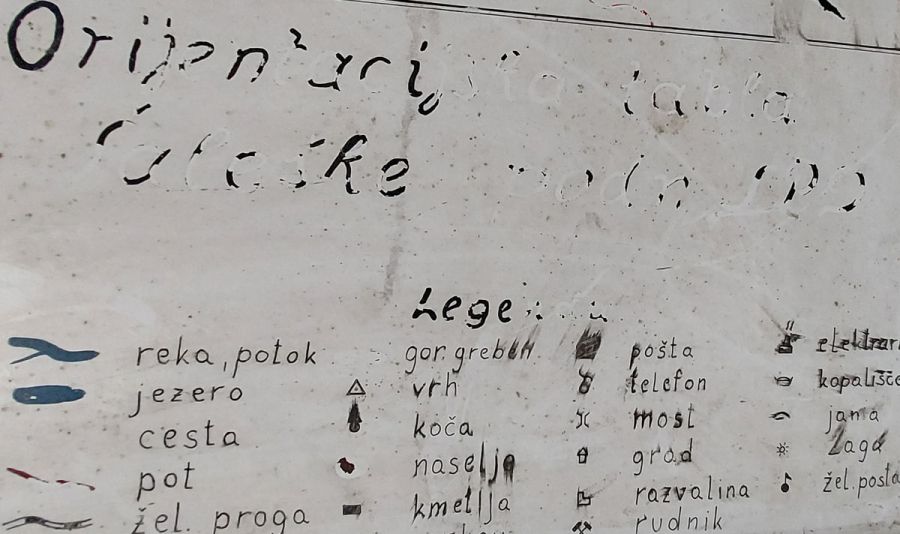 Orijentacijska tabla
Šaleške
Legenda
reka, potok
jezero
cesta
pot
žel. proga
gor. greben
vrh
koča
naselja
kmetija
pošta
telefon
most
grad
razvalina
rudnik
kopališče
jama
žaga
žel. posta